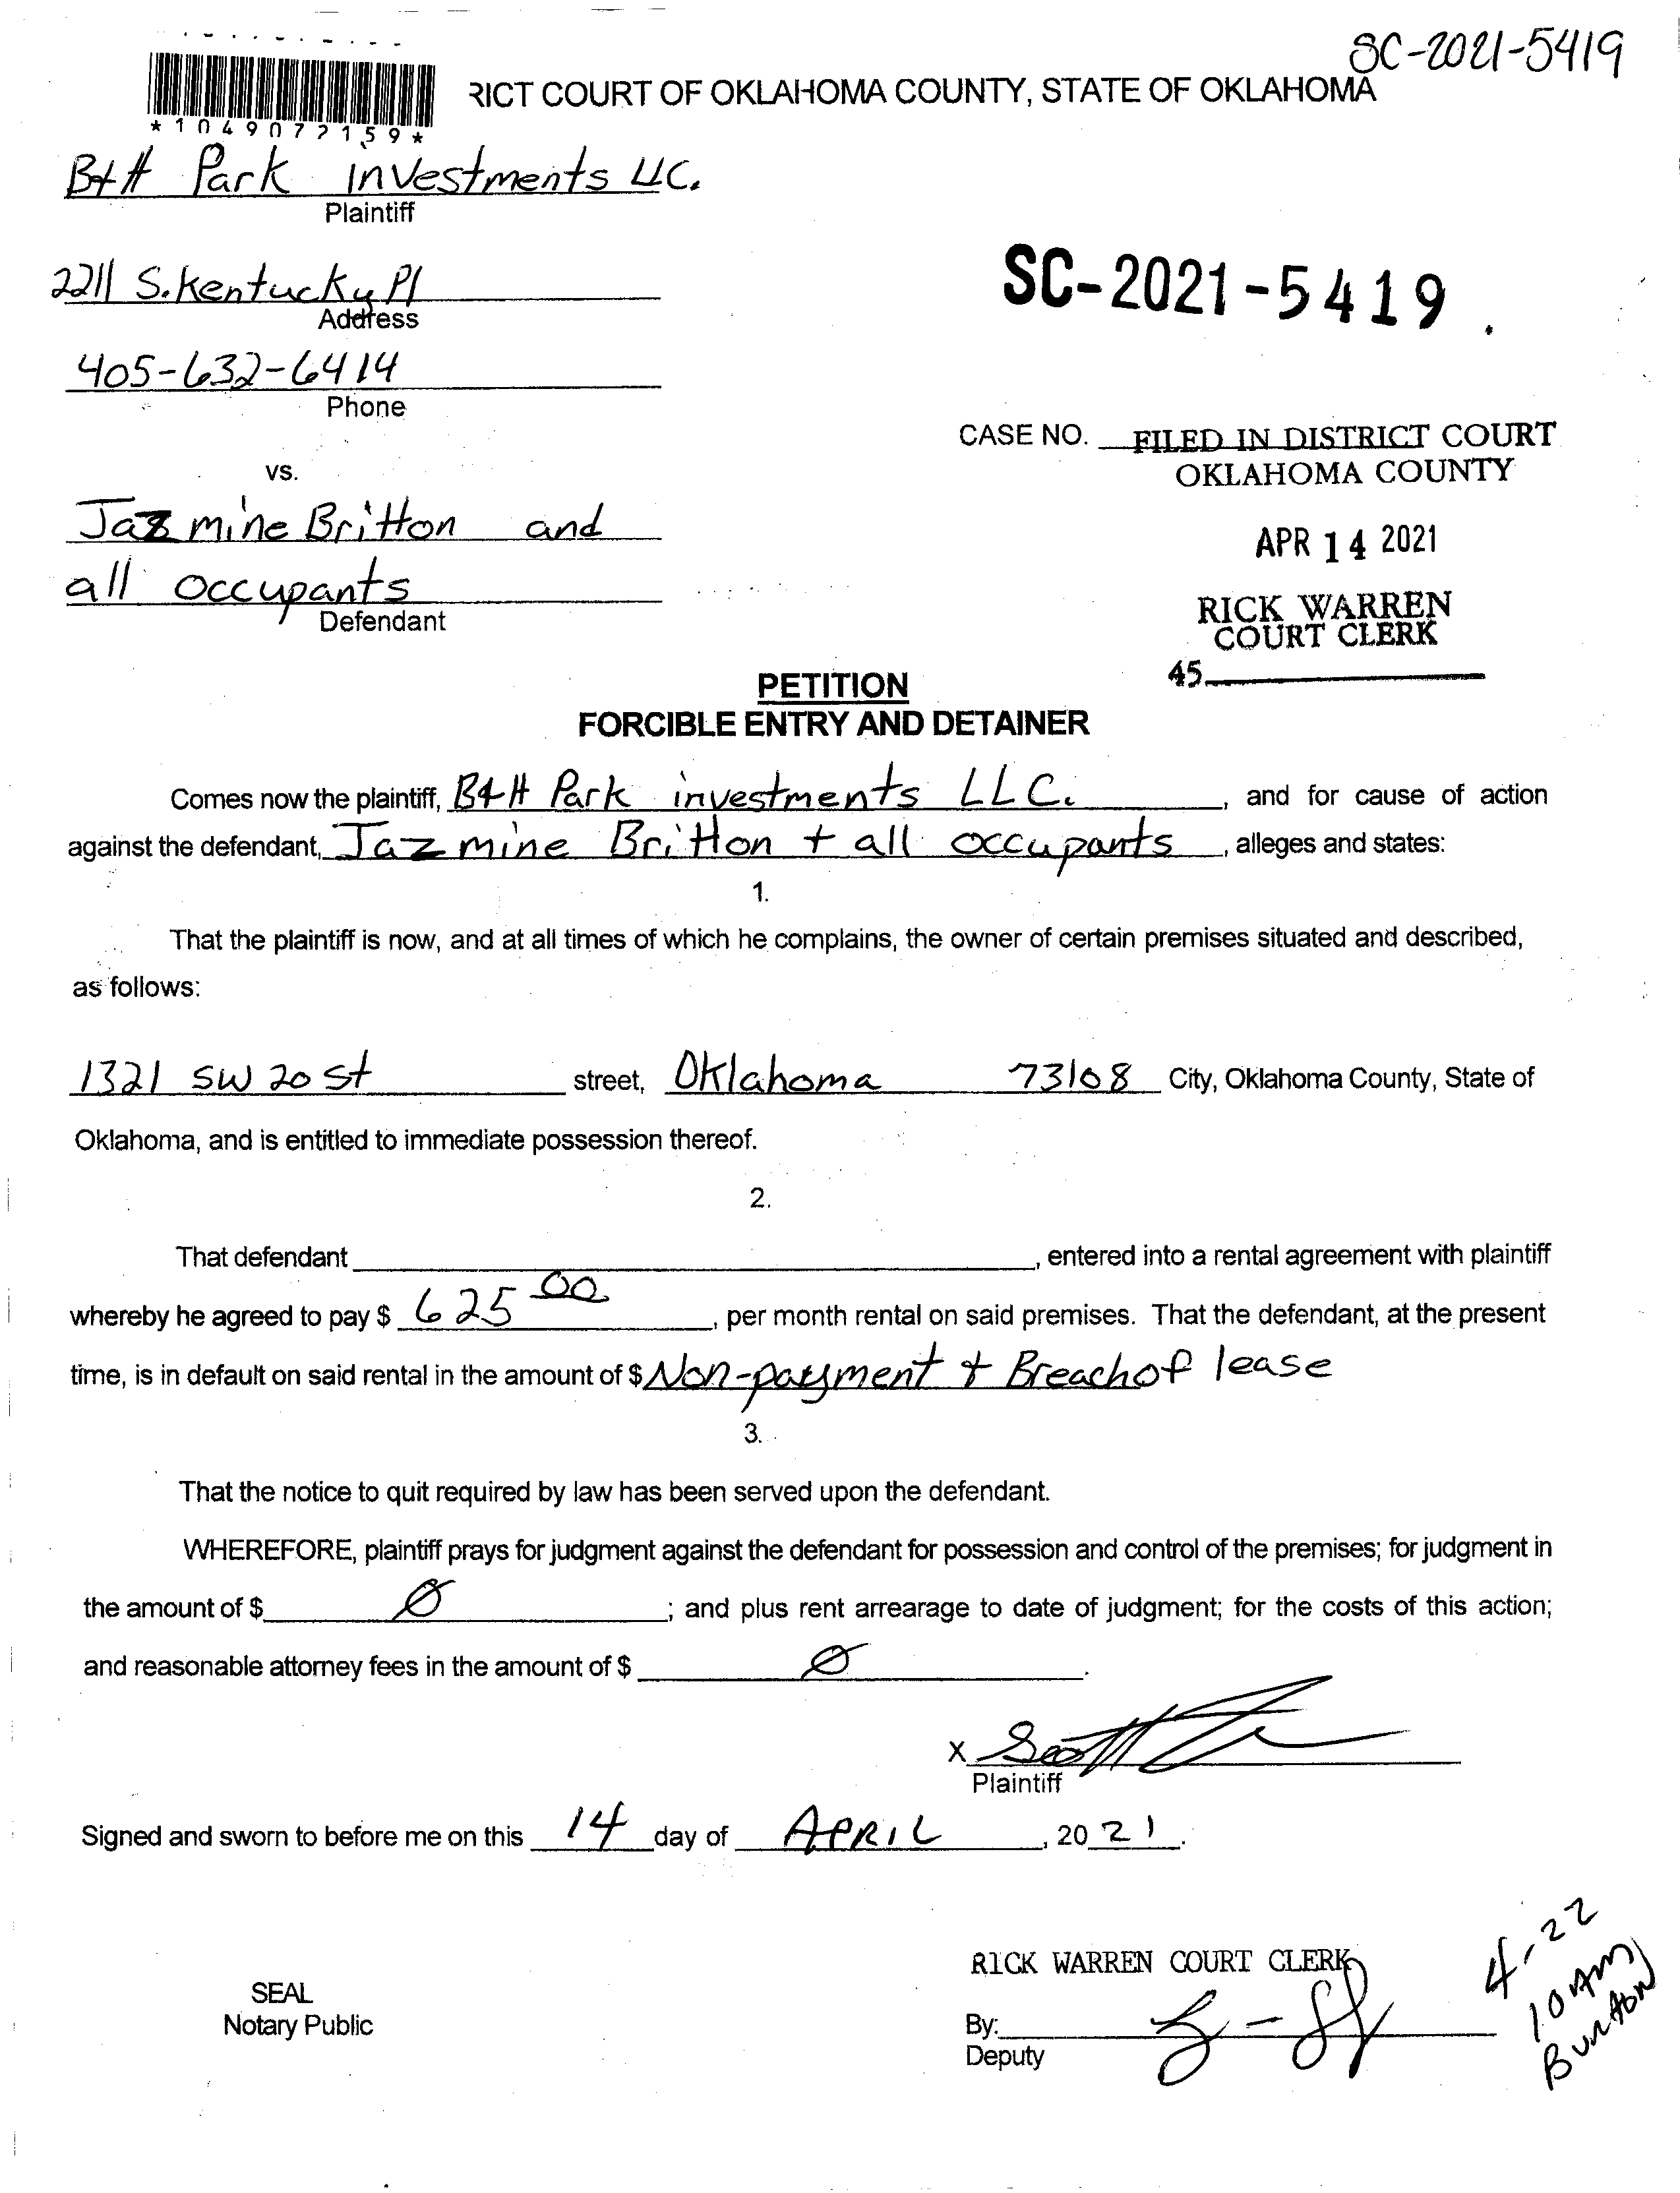 SC-2021-5419
RICT COURT OF OKLAHOMA COUNTY, STATE OF OKLAHOMA
*1049077159*
B+H Park investments LLC.
Plaintiff
2211 S. Kentucky Pl
Address
SC-2021-5419.
405-632-6414
Phone
CASE NO. FILED IN DISTRICT COURT
OKLAHOMA COUNTY
vs.
Jazmine Britton and
APR 14 2021
all occupants
Defendant
RICK WARREN
COURT CLERK
45
PETITION
FORCIBLE ENTRY AND DETAINER
Comes now the plaintiff, B&H Park investments LLC., and for cause of action
against the defendant, Jazmine Britton + all occupants, alleges and states:
1.
That the plaintiff is now, and at all times of which he complains, the owner of certain premises situated and described,
as follows:
1321 SW 20 St street, Oklahoma 73108 City, Oklahoma County, State of
Oklahoma, and is entitled to immediate possession thereof.
2.
That defendant, entered into a rental agreement with plaintiff
whereby he agreed to pay $ 625 00, per month rental on said premises. That the defendant, at the present
time, is in default on said rental in the amount of $ Non-payment + Breach of lease
3.
That the notice to quit required by law has been served upon the defendant.
WHEREFORE, plaintiff prays for judgment against the defendant for possession and control of the premises; for judgment in
the amount of $ Ø; and plus rent arrearage to date of judgment; for the costs of this action;
and reasonable attorney fees in the amount of $ Ø.
X Scott
Plaintiff
Signed and sworn to before me on this 14 day of APRIL, 2021.
4-22
10 AM
Burton
RICK WARREN COURT CLERK
SEAL
Notary Public
By:
Deputy